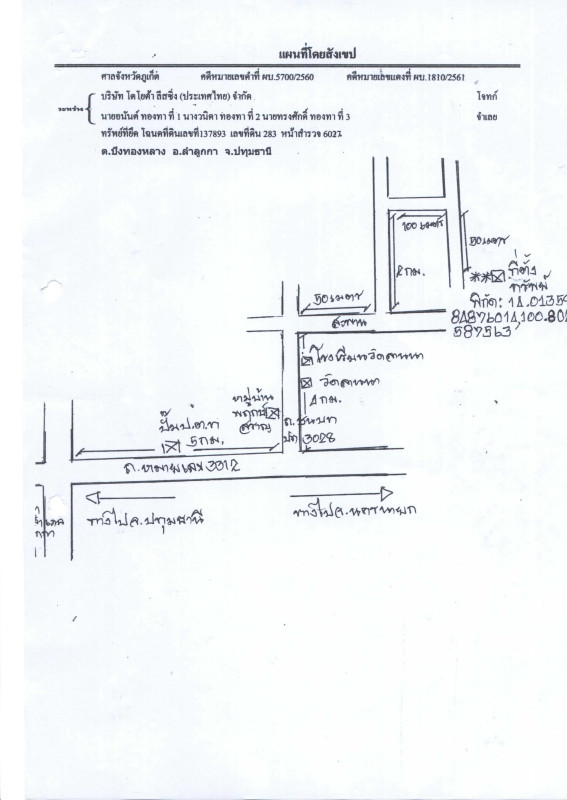 แผนที่โดยสังเขป
ศาลจังหวัดภูเก็ต คดีหมายเลขดำที่ ผบ.5700/2560 คดีหมายเลขแดงที่ ผบ.1810/2561
บริษัท โตโยต้า ลีสซิ่ง (ประเทศไทย) จำกัด โจทก์
ระหว่าง
นายอนันต์ ทองทา ที่ 1 นางวนิดา ทองทา ที่ 2 นายทรงศักดิ์ ทองทา ที่ 3 จำเลย
ทรัพย์ที่ยึด โฉนดที่ดินเลขที่137893 เลขที่ดิน 283 หน้าสำรวจ 6027
ต.บึงทองหลาง อ.ลำลูกกา จ.ปทุมธานี
100 เมตร
50 เมตร
2 กม.
**ที่ตั้ง
ทรัพย์
50 เมตร
พิกัด: 14.01359
84876014,100.80
587563
สะพาน
โรงเรียนวัดลานนา
วัดลานนา
หมู่บ้าน
พฤกษ์
1 กม.
ปั๊มป.ต.ท
5 กม.
ถ.ชนบท
3028
ถ.หมายเลข 3312
ทางไปจ.ปทุมธานี
ทางไปจ.นครนายก